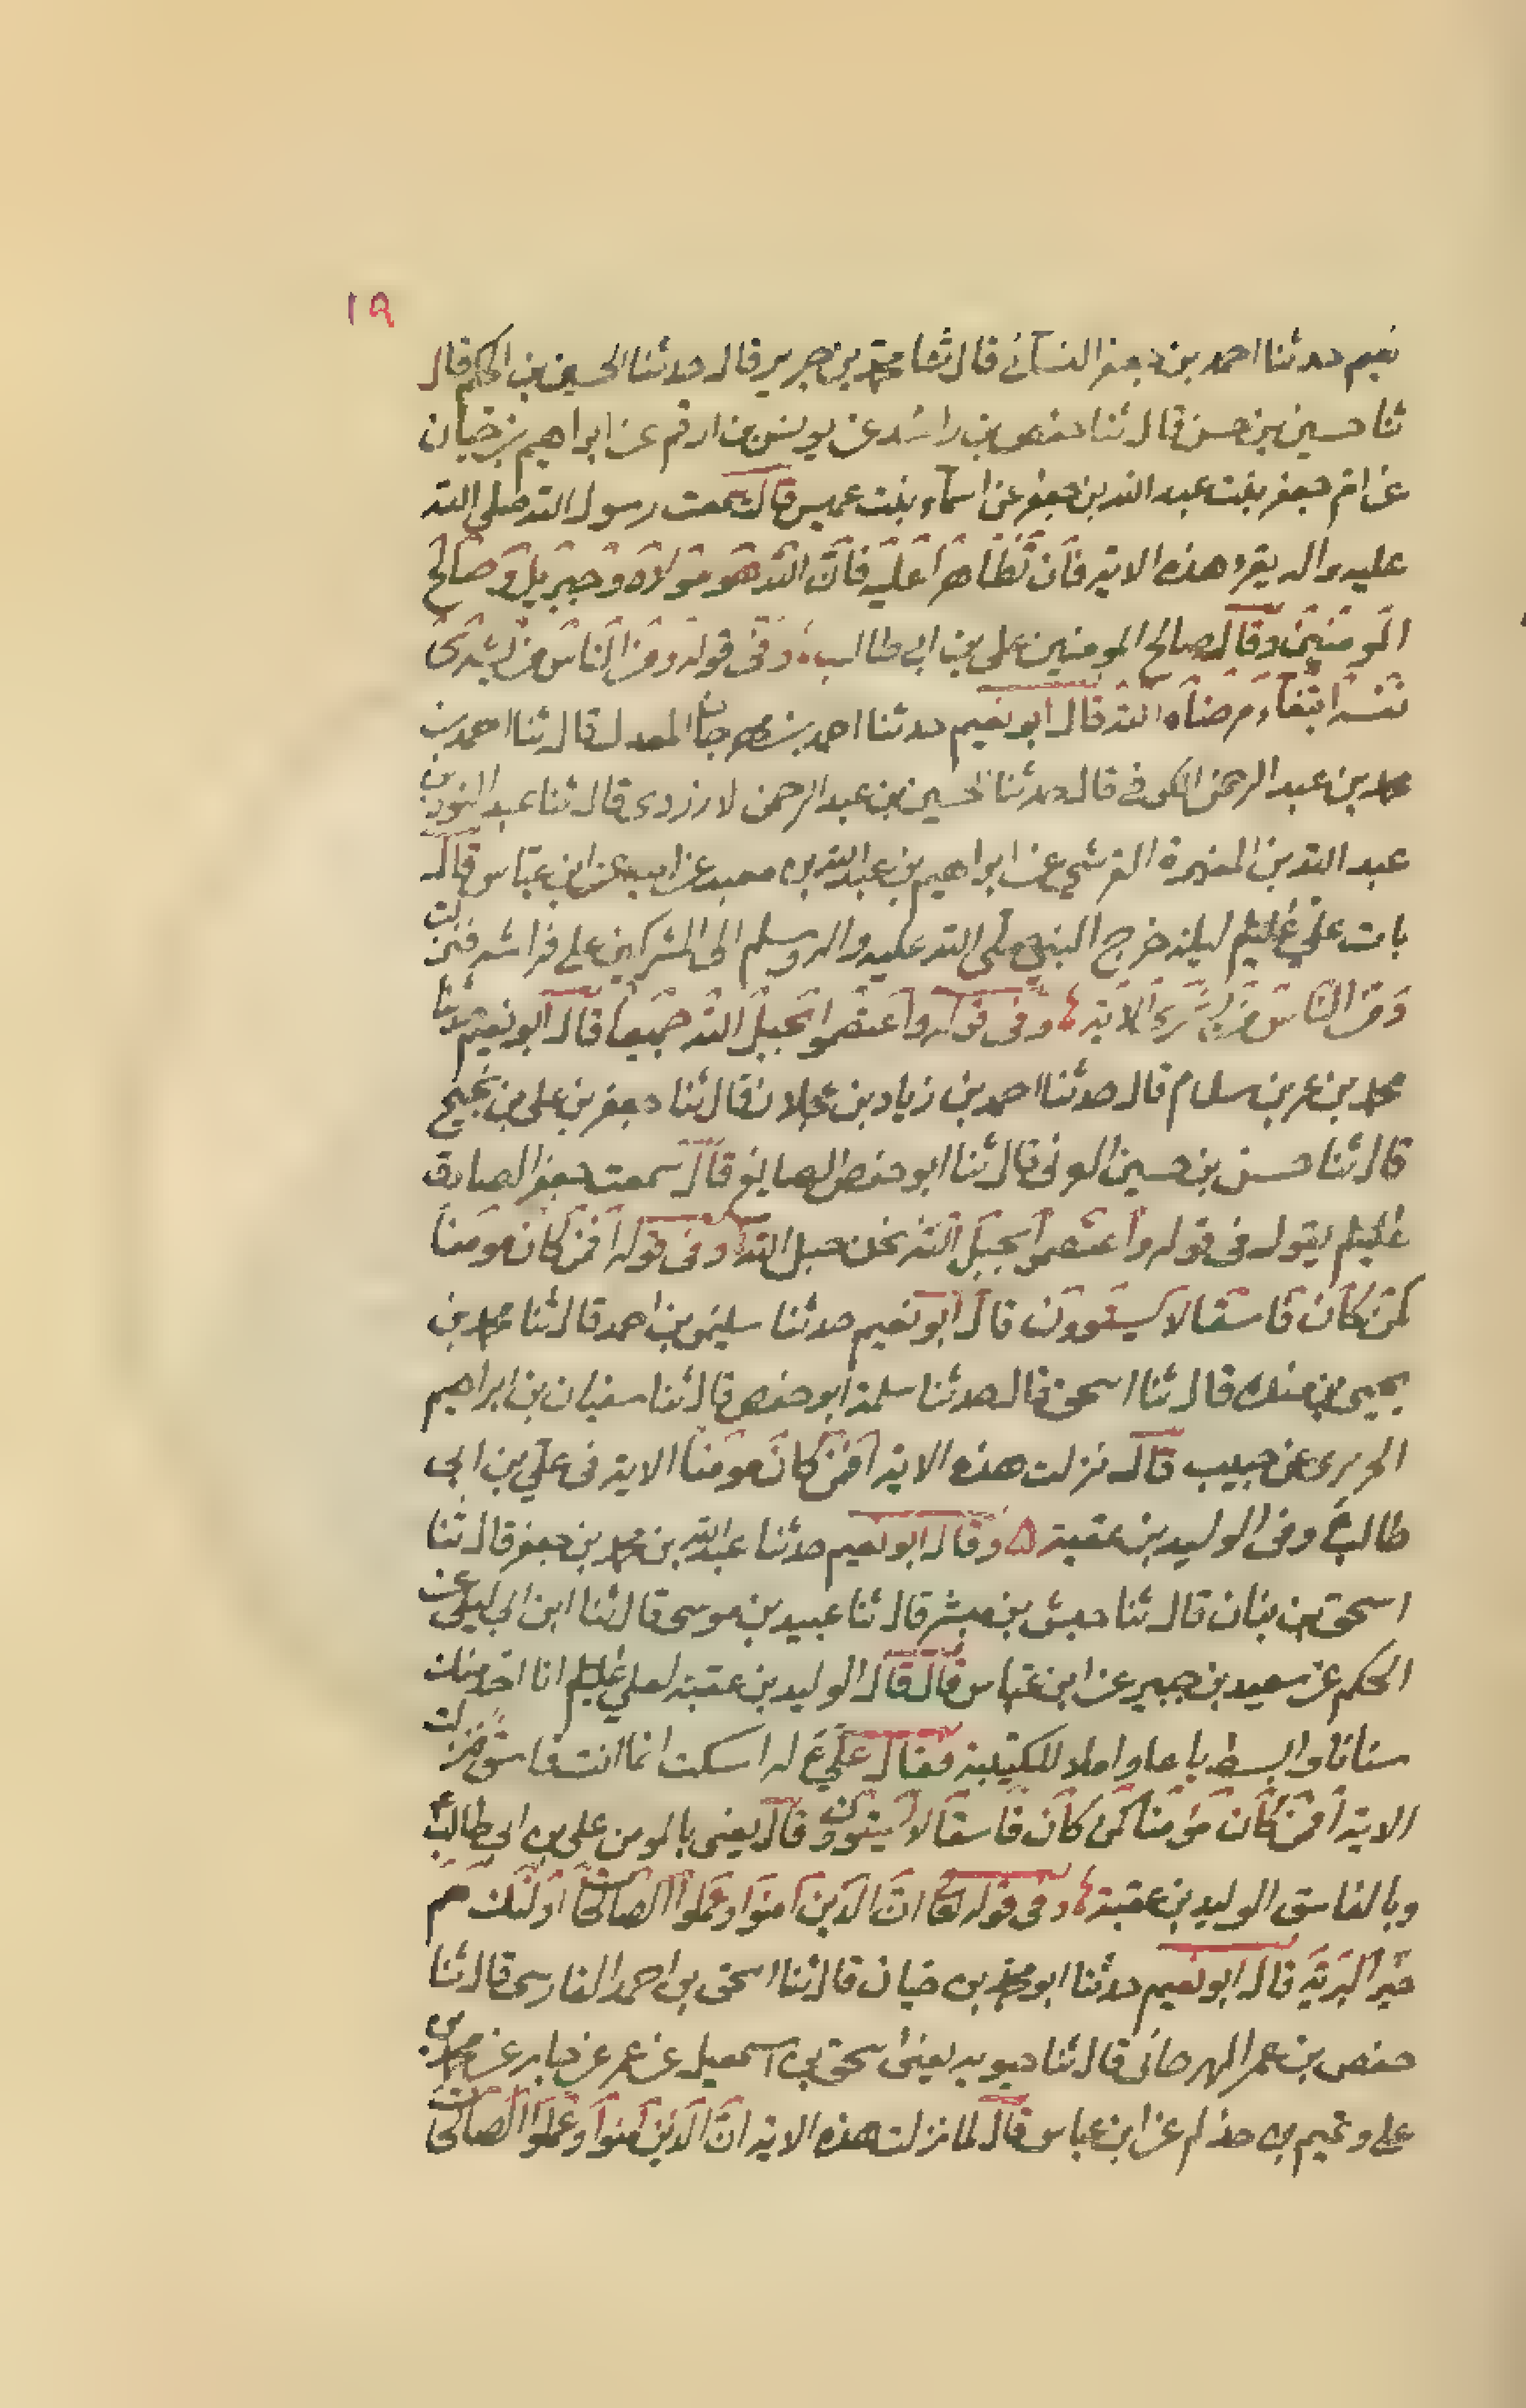 ١٩
نعيم حدثنا احمد بن جعفر النسائى قال ثنا محمد بن جرير قال حدثنا الحسين بن الحكم قال
ثنا حسين بن حسن قال ثنا حفص بن راشد عن يونس بن ارقم عن ابراهيم بن حيان
عن ام جعفر بنت عبد الله بن جعفر عن اسماء بنت عميس قالت سمعت رسول الله صلى الله
عليه واله يقرء هذه الاية فان تظاهرا عليه فان الله هو مولاه وجبريل وصالح
المومنين وقال صالح المومنين على بن ابى طالب وفى قوله ومن الناس من يشرى
نفسه ابتغاء مرضاة الله قال ابو نعيم حدثنا احمد بن المعدل قال ثنا احمد بن
محمد بن عبد الرحمن الكوفى قال حدثنا الحسين بن عبد الرحمن الازدى قال ثنا عبد النور بن
عبد الله بن المغيرة القرشى عن ابراهيم بن عبد الله بن معبد عن ابيه عن ابن عباس قال
بات على عليلم ليلة خرج النبى صلى الله عليه واله وسلم الى المشركين على فراشه فنزلت
ومن الناس من يشرى الاية وفى قوله واعتصموا بحبل الله جميعا قال ابو نعيم حدثنا
محمد بن عمر بن سلام قال حدثنا احمد بن زياد بن عجلان قال ثنا جعفر بن على بن نجيح
قال ثنا حسن بن حسين العرنى قال ثنا ابو حفص الصايغ قال سمعت جعفر الصادق
عليلم يقول فى قوله واعتصموا بحبل الله نحن حبل الله وفى قوله افمن كان مومنا
كمن كان فاسقا لا يستوون قال ابو نعيم حدثنا سليمن بن احمد قال ثنا محمد بن
يحيى بن منده قال ثنا اسحق قال حدثنا سلمة ابو حفص قال ثنا سفيان بن ابراهيم
الحريرى عن حبيب قال نزلت هذه الاية افمن كان مومنا الاية فى على بن ابى
طالب ع وفى الوليد بن عقبة ٥ وقال ابو نعيم حدثنا عبد الله بن محمد بن جعفر قال ثنا
اسحق بن بنان قال ثنا حبيش بن مبشر قال ثنا عبيد بن موسى قال ثنا ابن ابى ليلى عن
الحكم عن سعيد بن جبير عن ابن عباس قال قال الوليد بن عقبة لعلى عليلم انا احد منك
سنانا وابسط باعا واملاء للكتيبة فقال على ع له اسكت انما انت فاسق فنزلت
الاية افمن كان مؤمنا كمن كان فاسقا لا يستوون قال يعنى بالمومن على بن ابى طالب
وبالفاسق الوليد بن عقبة وفى قوله تعا ان الذين امنوا وعملوا الصالحات اولئك هم
خير البرية قال ابو نعيم حدثنا ابو محمد بن حيان قال ثنا اسحق بن احمد الفارسى قال ثنا
حفص بن عمر المهرجانى قال ثنا حيويه يعنى اسحق بن اسمعيل عن عمر عن جابر عن محمد بن
على وتميم بن حذلم عن ابن عباس قال لما نزلت هذه الاية ان الذين امنوا وعملوا الصالحات